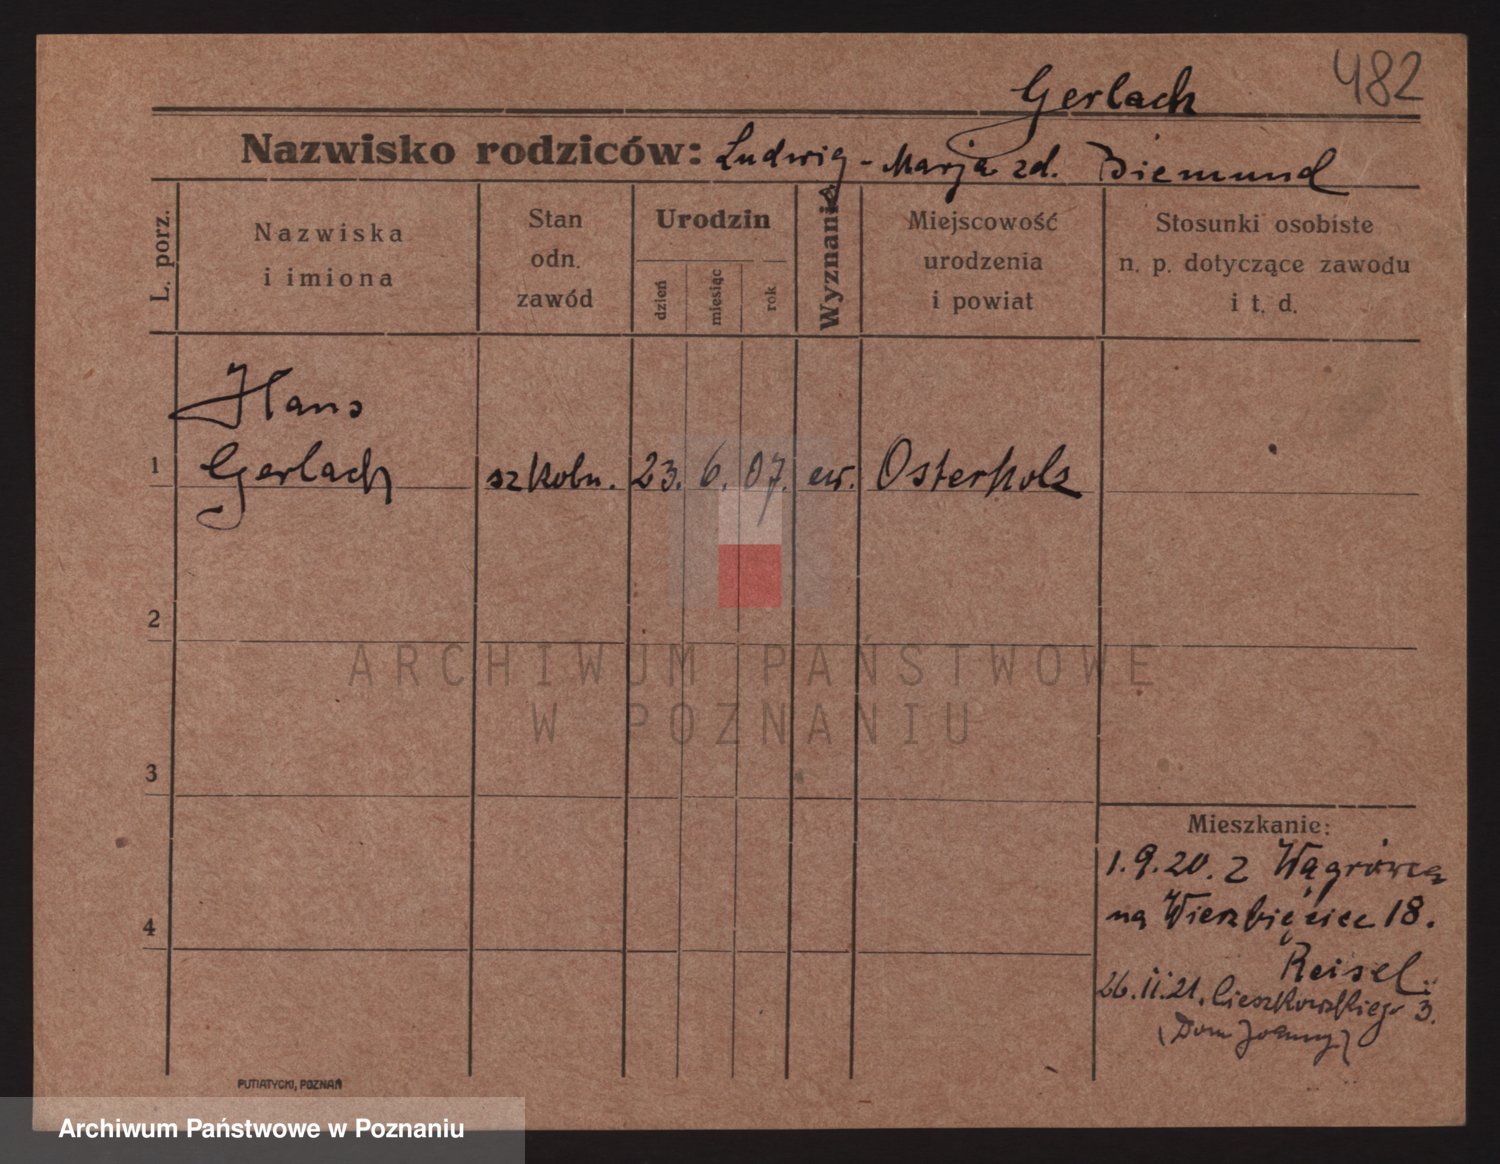 482
Gerlach
Nazwisko rodziców: Ludwig - Marja zd. Biemund
L. porz.
Nazwiska
i imiona
Stan
odn.
zawód
Urodzin
dzień
miesiąc
rok
Wyznanie
Miejscowość
urodzenia
i powiat
Stosunki osobiste
n. p. dotyczące zawodu
i t. d.
Hans
1 Gerlach szkoln. 23. 6. 07. ew. Osterholz
2
ARCHIWUM PAŃSTWOWE
W POZNANIU
3
4
Mieszkanie:
1.9.20. z Wągrówca
na Wierzbięcice 18.
Reisel
26.II.21. Cieszkowskiego 3.
(Dom Joanny)
PUTIATYCKI, POZNAŃ
Archiwum Państwowe w Poznaniu